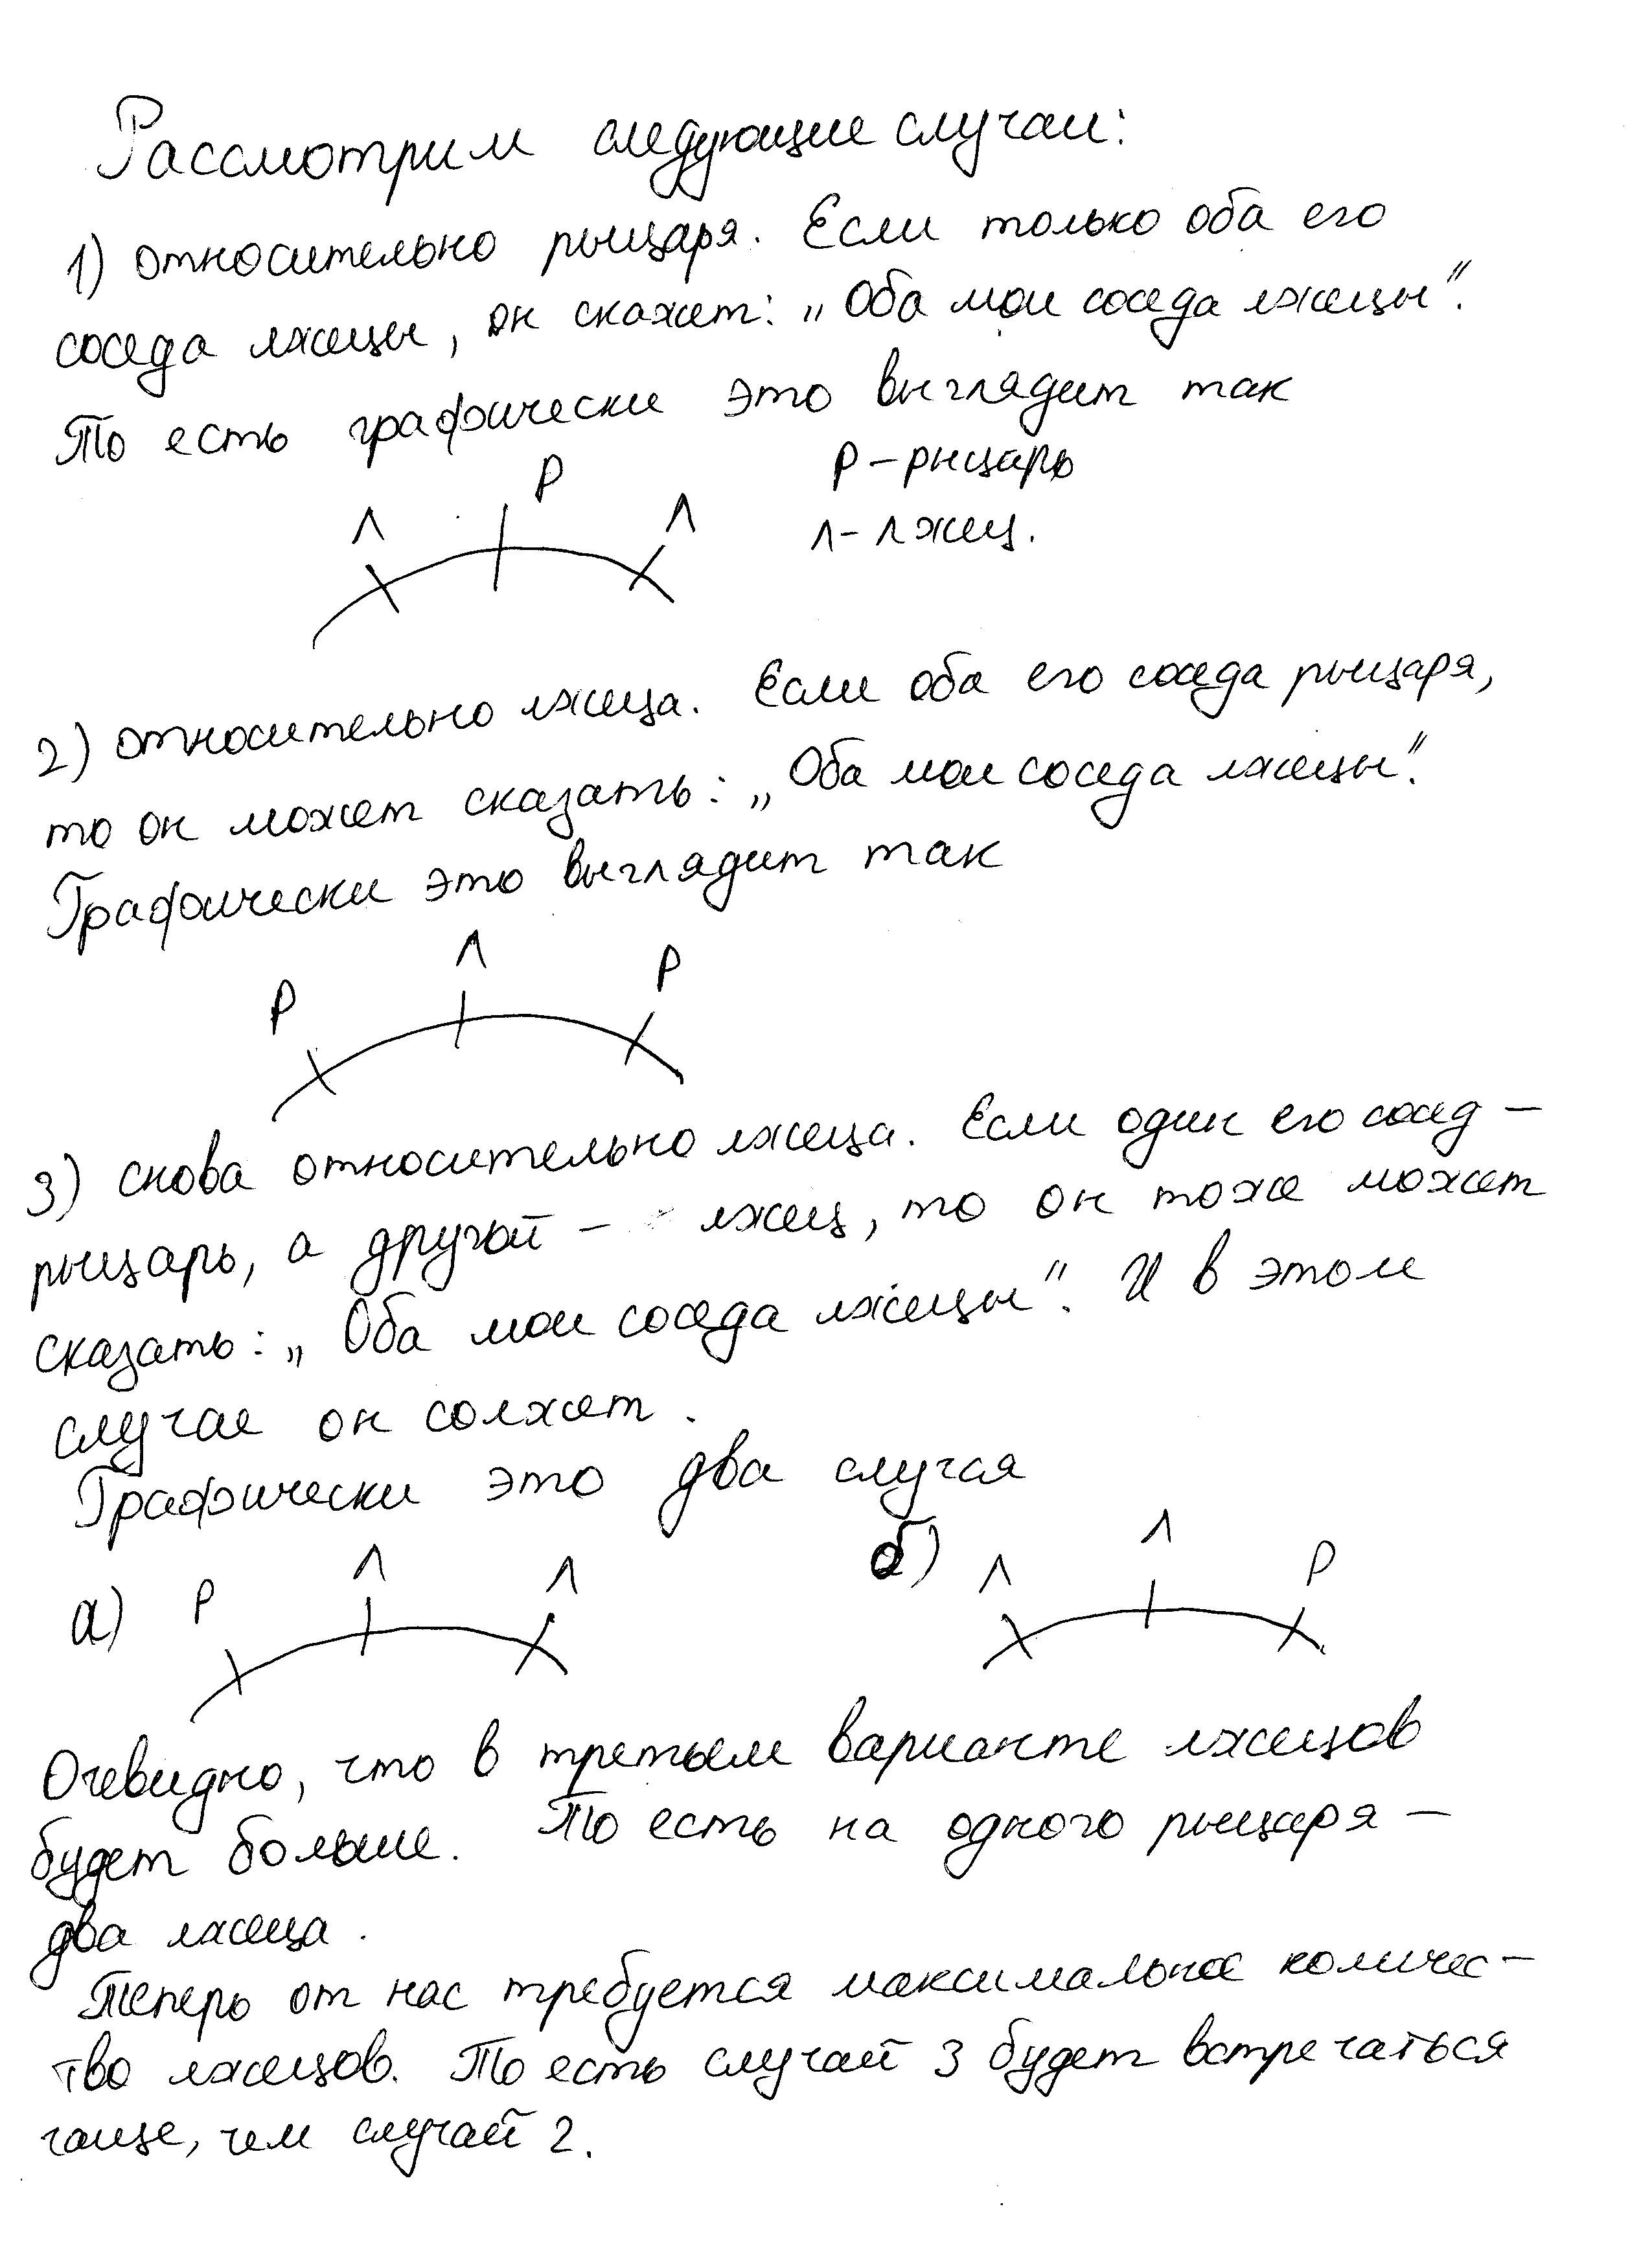 Рассмотрим следующие случаи:
1) относительно рыцаря. Если только оба его
соседа лжецы, он скажет: „Оба мои соседа лжецы".
То есть графически это выглядит так
Р - рыцарь
Л Р Л
Л - лжец.
2) относительно лжеца. Если оба его соседа рыцаря,
то он может сказать: „Оба мои соседа лжецы".
Графически это выглядит так
Р Л Р
3) снова относительно лжеца. Если один его сосед -
рыцарь, а другой - лжец, то он тоже может
сказать: „Оба мои соседа лжецы". И в этом
случае он солжет.
Графически это два случая
а) Р Л Л
б) Л Л Р
Очевидно, что в третьем варианте лжецов
будет больше. То есть на одного рыцаря -
два лжеца.
Теперь от нас требуется максимальное количес-
тво лжецов. То есть случай 3 будет встречаться
чаще, чем случай 2.